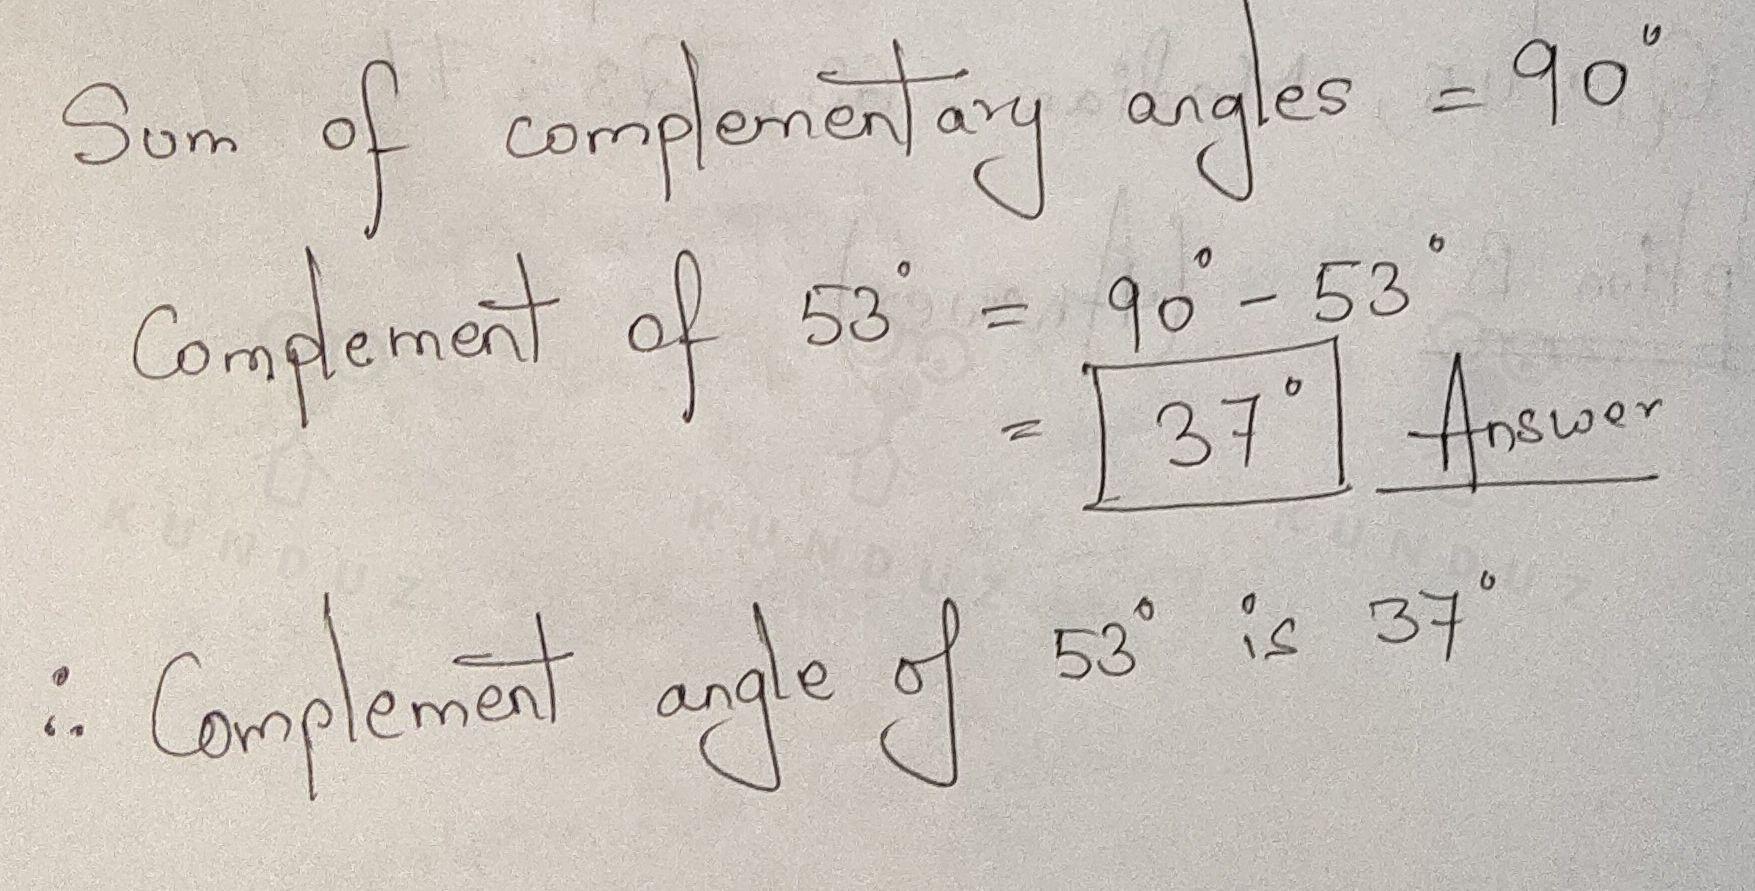 Sum of complementary angles = 90°
Complement of 53° = 90° - 53°
= 37° Answer
∴ Complement angle of 53° is 37°
KUNDUZ KUNDUZ KUNDUZ